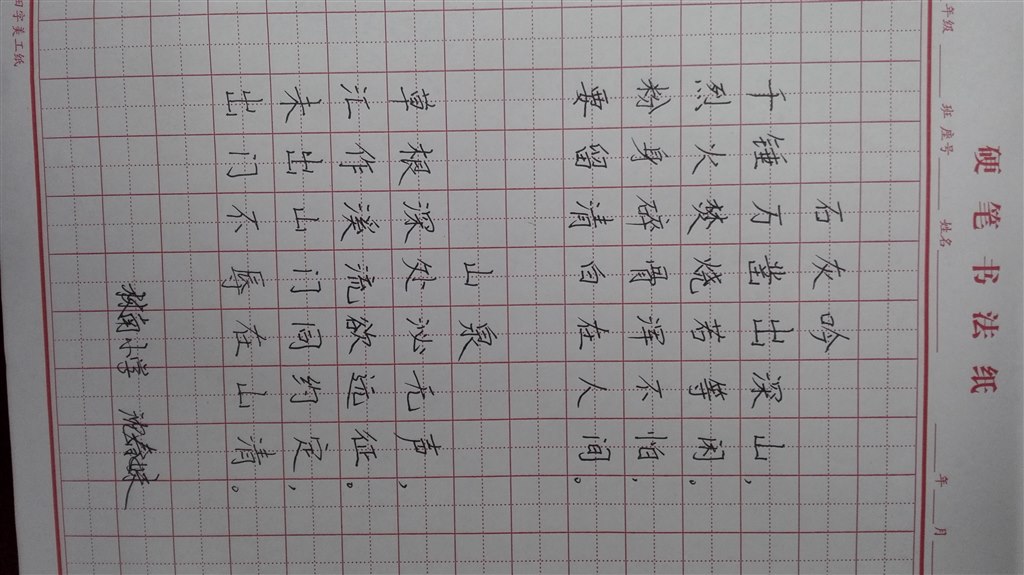 硬笔书法纸
年级 班 座号 姓名 年 月
石灰吟
千锤万凿出深山，
烈火焚烧若等闲。
粉身碎骨浑不怕，
要留清白在人间。
山泉
草根深处泌无声，
汇作溪流欲远征。
未出山门同约定，
出门不辱在山清。
南小学
字美工纸